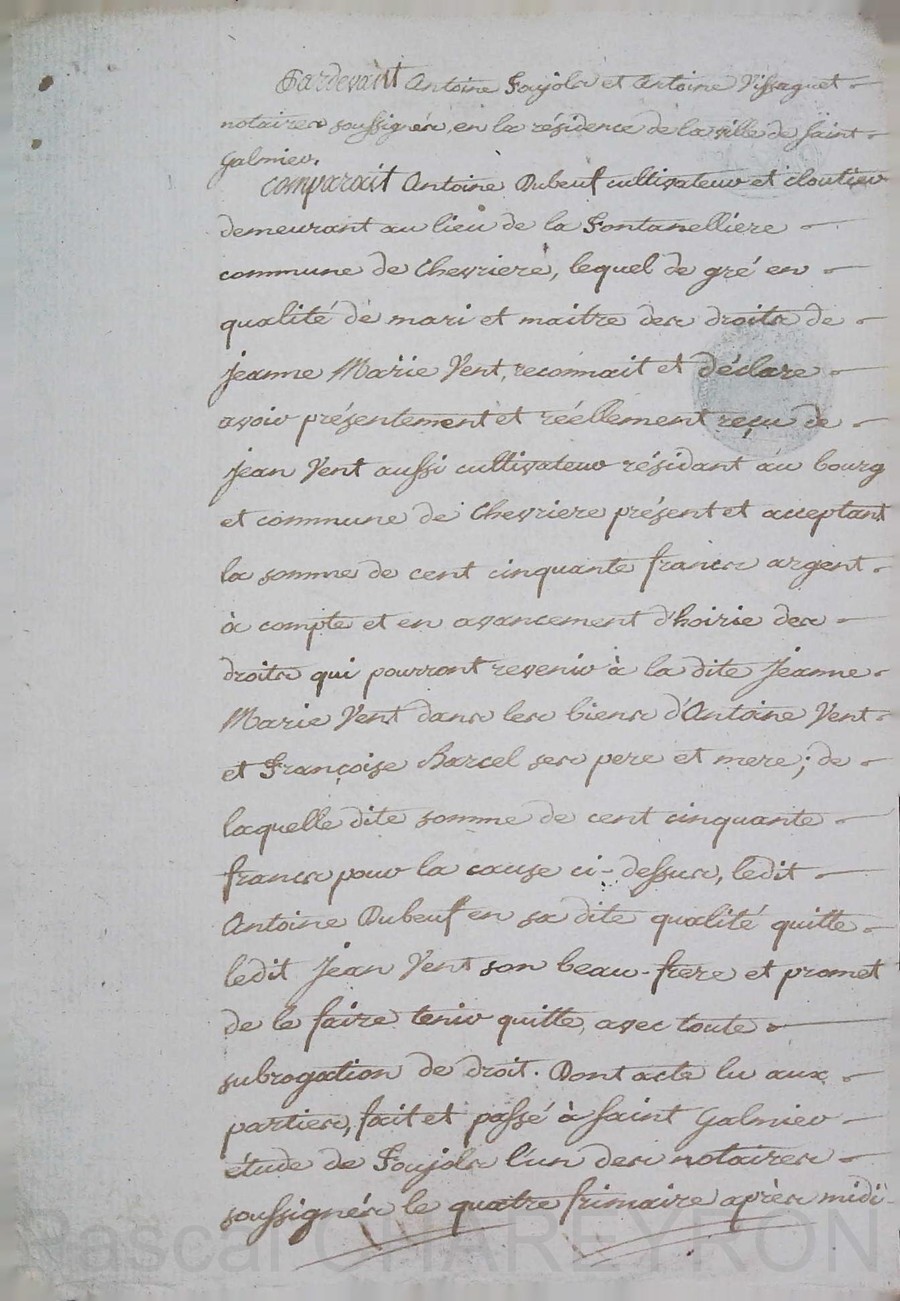 Pardevant Antoine Foujols et Antoine Vissaguet
notaires soussignés, en la résidence de la ville de Saint-
Galmier.
Comparait Antoine Dubeuf cultivateur et cloutier
demeurant au lieu de la Fontanelliere
commune de Chevriere, lequel de gré en
qualité de mari et maitre des droits de
jeanne Marie Vent, reconnait et déclare
avoir présentement et réellement reçu de
jean Vent aussi cultivateur résidant au bourg
et commune de Chevriere présent et acceptant
la somme de cent cinquante francs argent
à compte et en avancement d'hoirie des
droits qui pourront revenir à la dite Jeanne
Marie Vent dans les biens d'Antoine Vent
et Françoise Barcel ses pere et mere; de
laquelle dite somme de cent cinquante
francs pour la cause ci-dessus, ledit
Antoine Dubeuf en sa dite qualité quitte
ledit Jean Vent son beau-frere et promet
de le faire tenir quitte, avec toute
subrogation de droit. Dont acte lu aux
parties, fait et passé à Saint Galmier
étude de Foujols l'un des notaires
soussignés le quatre frimaire après midi
Pascal CHAREYRON